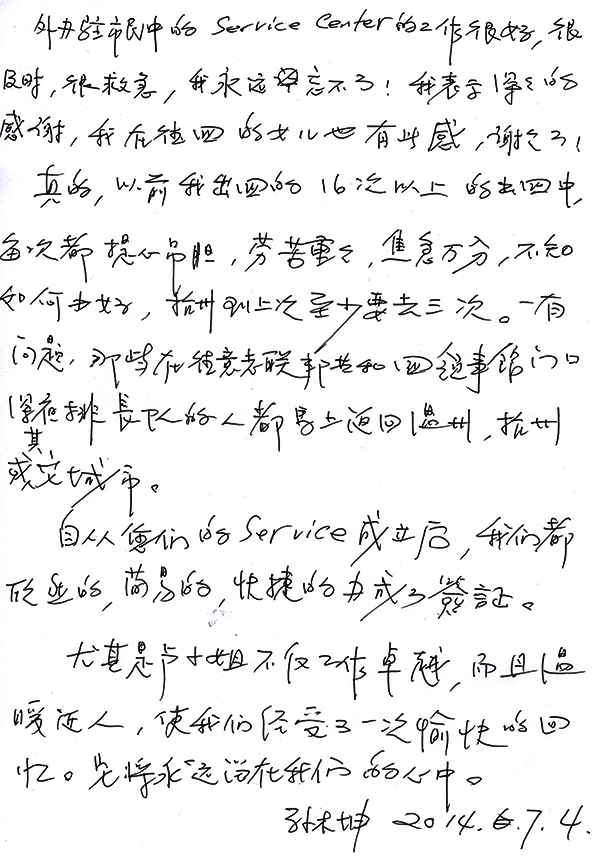 外办驻市民中的 Service Center的工作很好,很
及时,很救急,我永远忘不了!我表示深深的
感谢,我在德国的女儿也有此感,谢谢了!
真的,以前我出国的16次以上的出国中,
每次都提心吊胆,劳苦重重,焦急万分,不知
如何办好,杭州到上次至少要去三次。一有
问题,那些在德意志联邦共和国领事馆门口
深夜排長队的人都马上返回温州,杭州
或其它城市。
自从您们的Service成立后,我们都
欣然的,简易的,快捷的办成了簽証。
尤其是卢小姐不仅工作卓越,而且温
暖近人,使我们经受了一次愉快的回
忆。它将永远留在我们的心中。
孙木坤 2014.7.4.